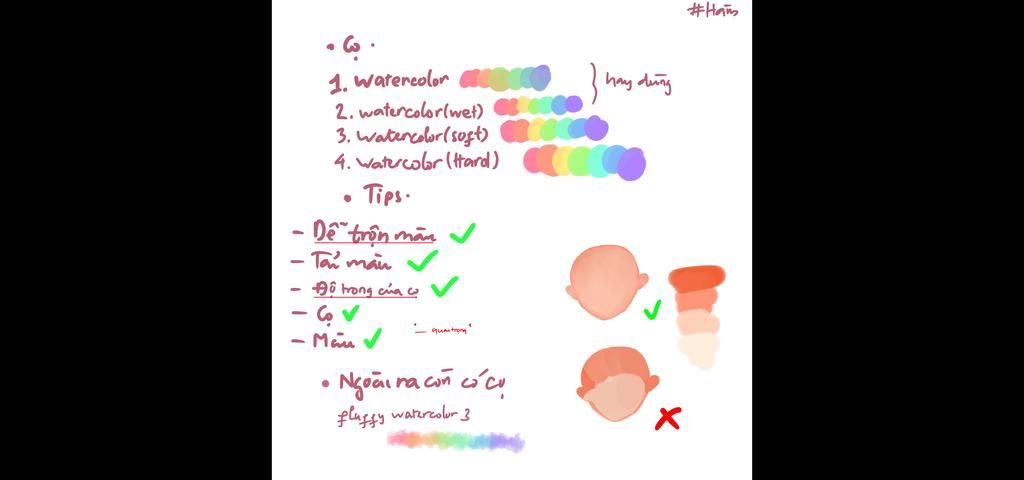 #Hân
• Cọ .
1. Watercolor
hay dùng
2. watercolor(wet)
3. watercolor(soft)
4. watercolor(Hard)
• Tips.
- Dễ trộn màu
- Tải màu
- Độ trong của cọ
- Cọ
- Màu
- quan trọng
• Ngoài ra còn có cọ
fluffy watercolor 3